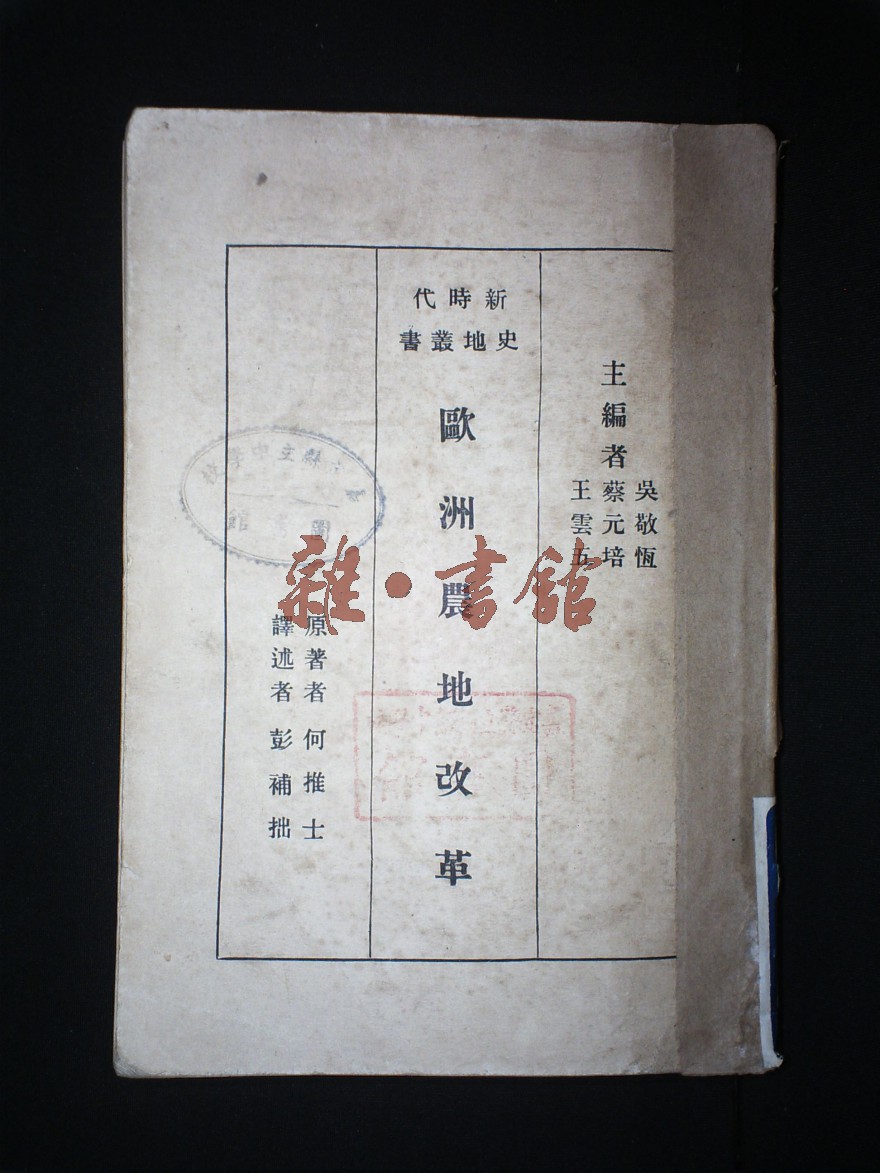 主編者
吳敬恆
蔡元培
王雲五
新時代
史地叢書
歐洲農地改革
原著者 何推士
譯述者 彭補拙
雜·書館